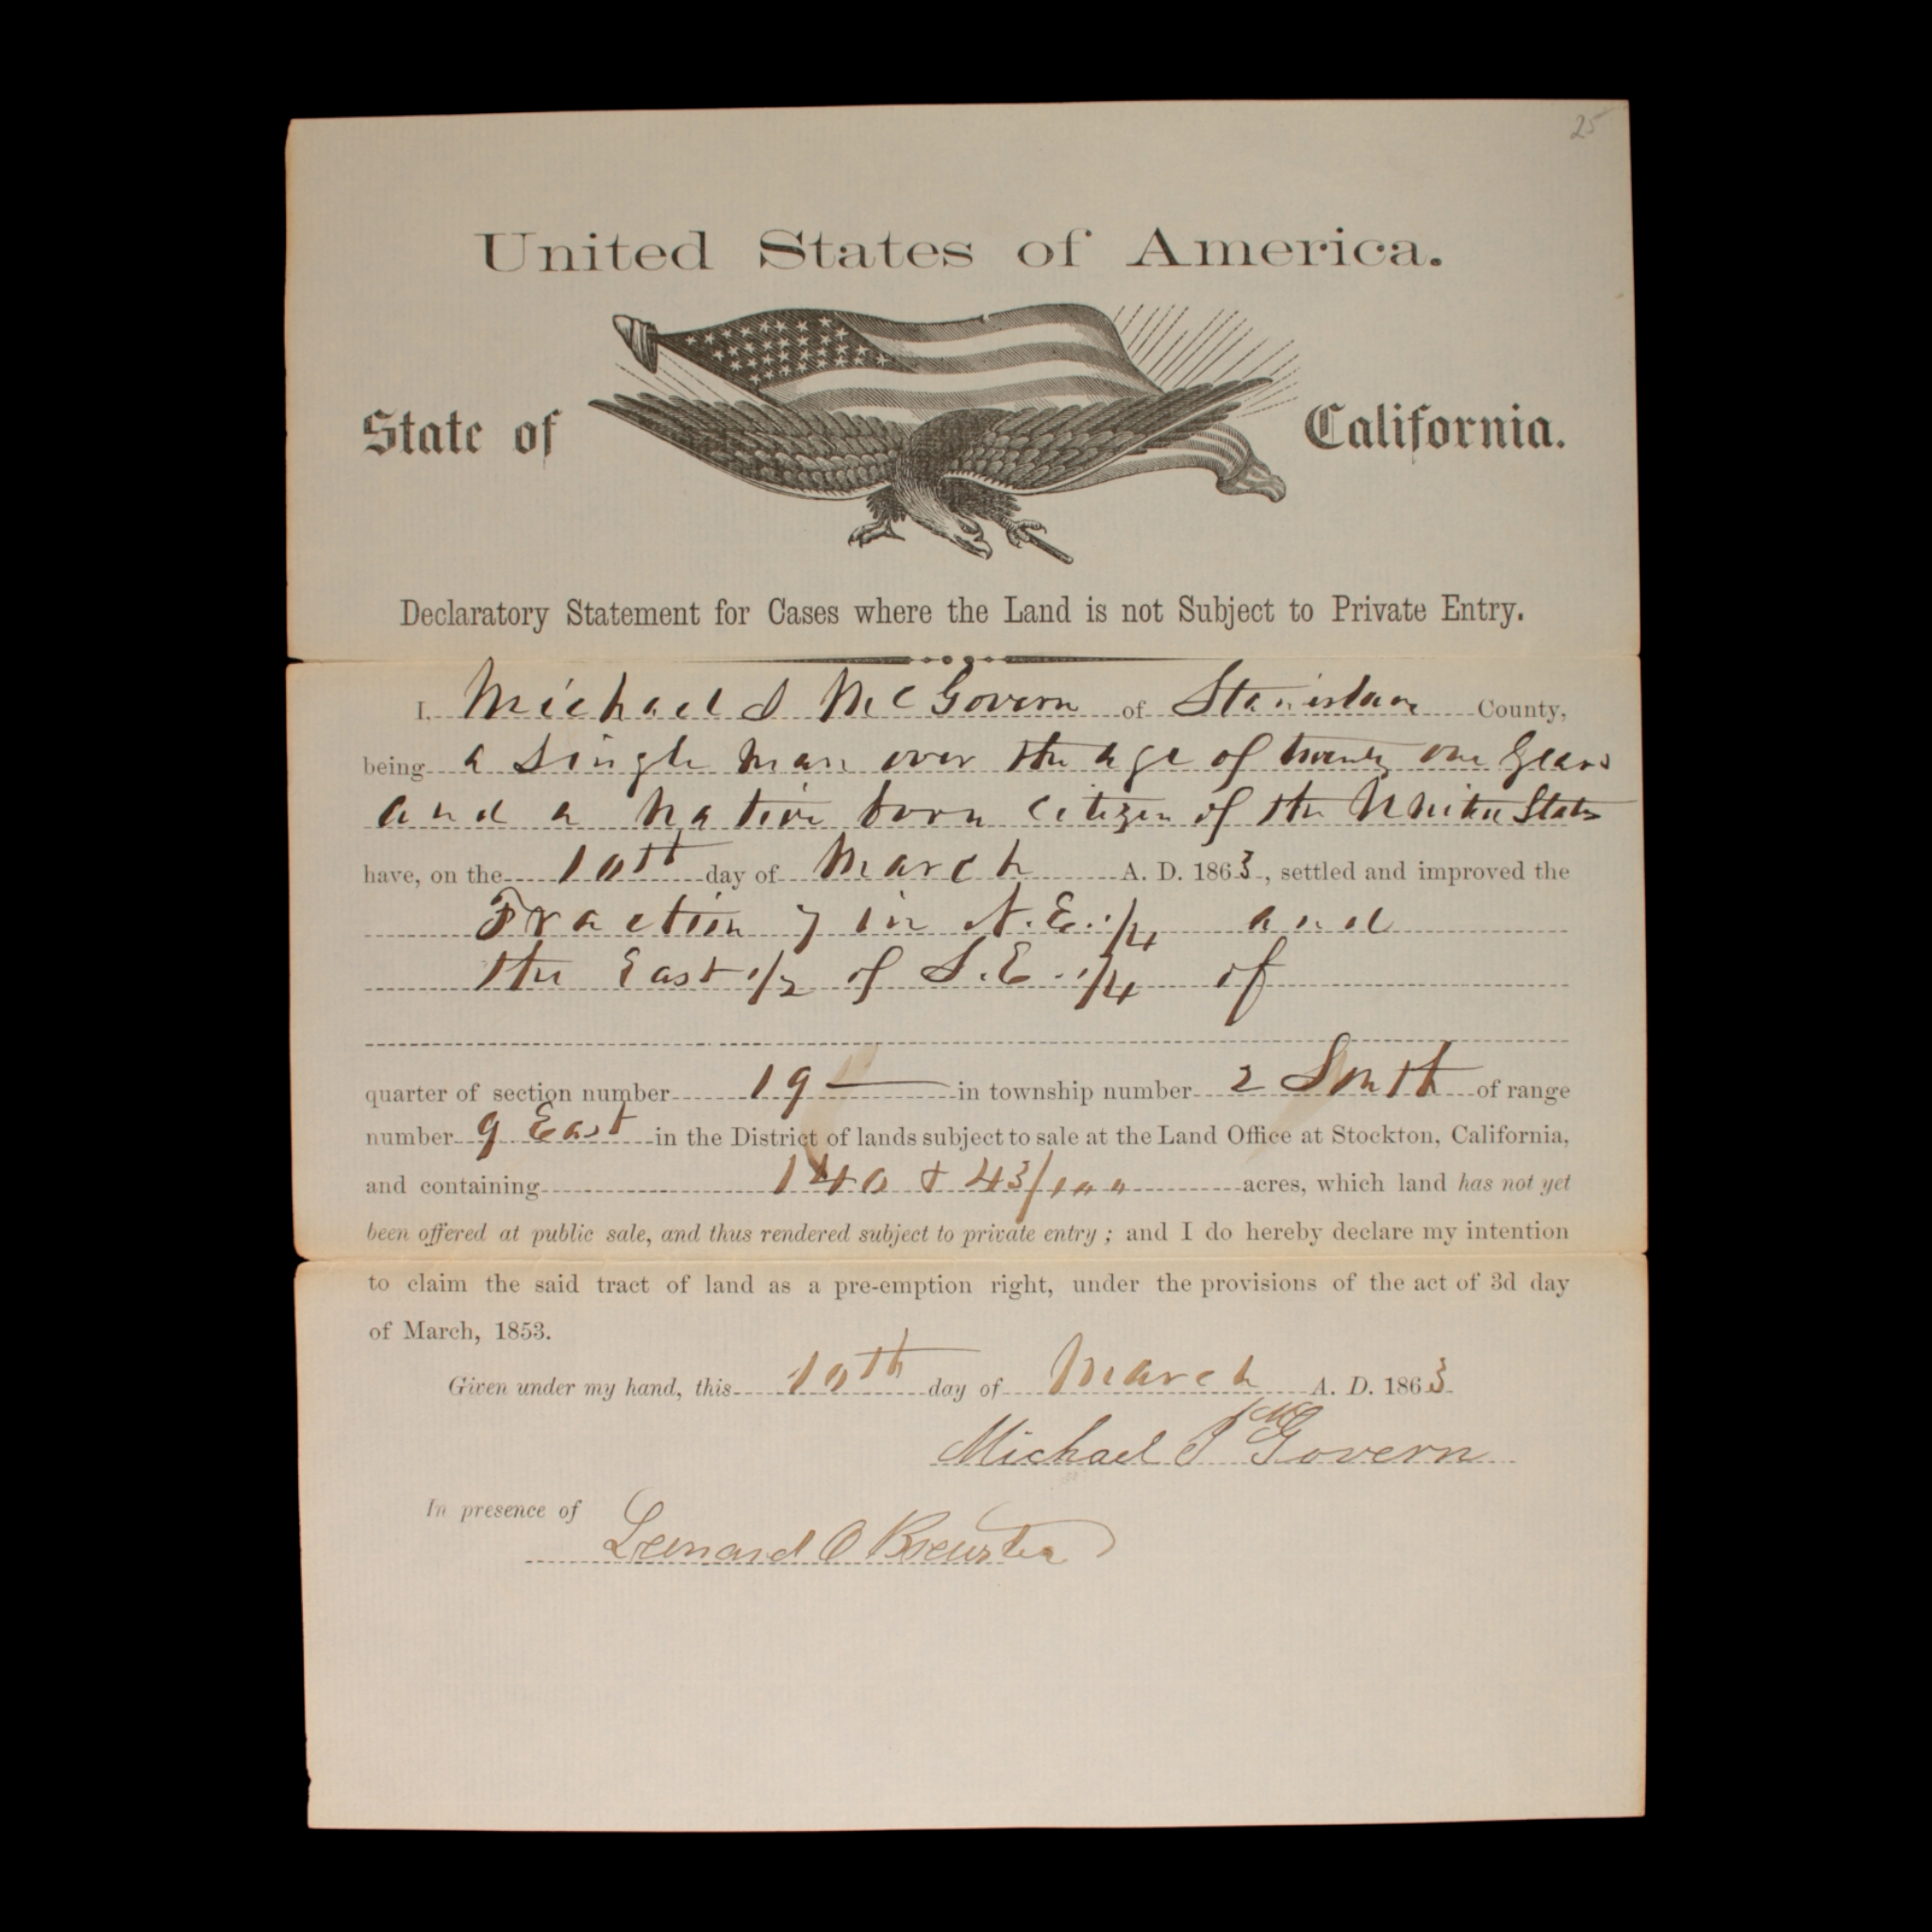 25
United States of America.
State of California.
Declaratory Statement for Cases where the Land is not Subject to Private Entry.
I, Michael S McGovern of Stanislaus County,
being a single man over the age of twenty one years
and a native born citizen of the United States
have, on the 10th day of March A. D. 1863, settled and improved the
Fraction 7 in N.E. 1/4 and
the East 1/2 of S.E. 1/4 of
quarter of section number 19 — in township number 2 South of range
number 9 East in the District of lands subject to sale at the Land Office at Stockton, California,
and containing 140 & 43/100 acres, which land has not yet
been offered at public sale, and thus rendered subject to private entry; and I do hereby declare my intention
to claim the said tract of land as a pre-emption right, under the provisions of the act of 3d day
of March, 1853.
Given under my hand, this 10th day of March A. D. 1863
Michael McGovern
In presence of
Leonard O Brewster